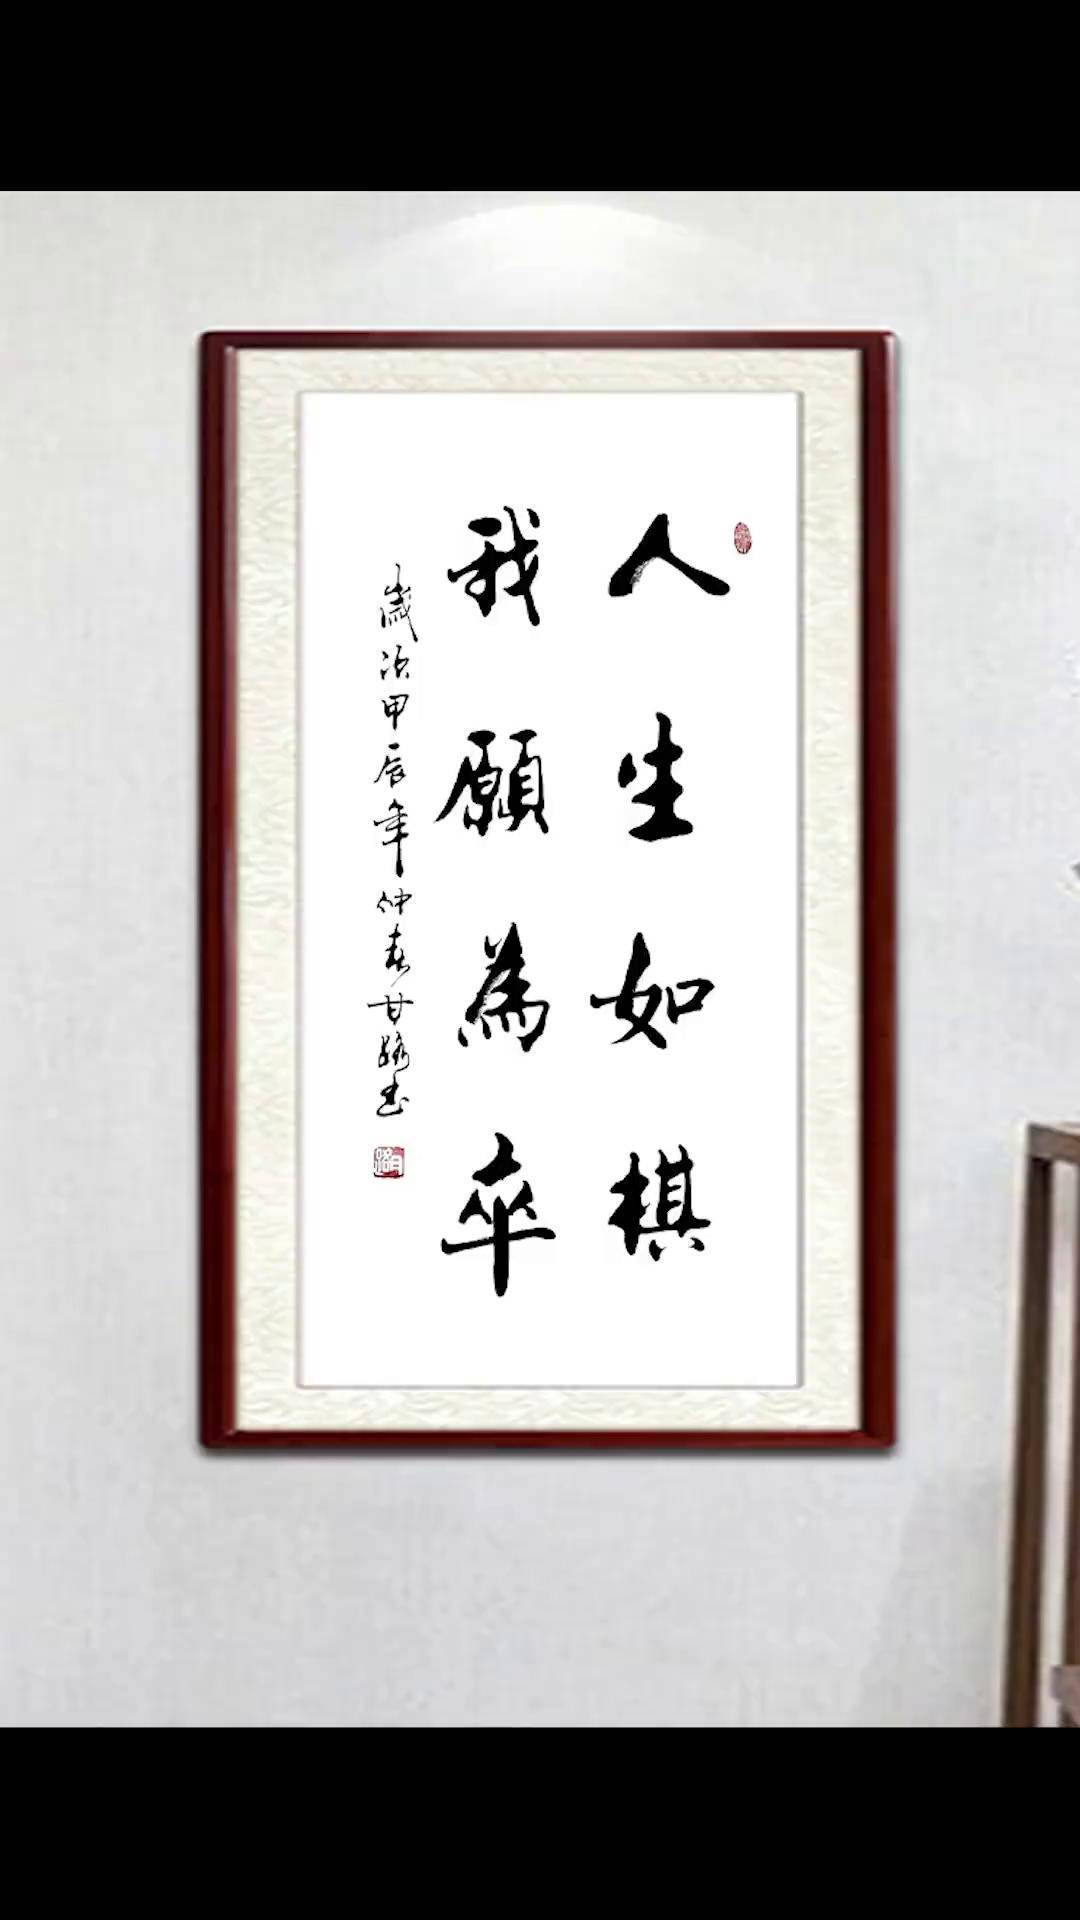 人生如棋
我願為卒
歲次甲辰年仲春甘路書